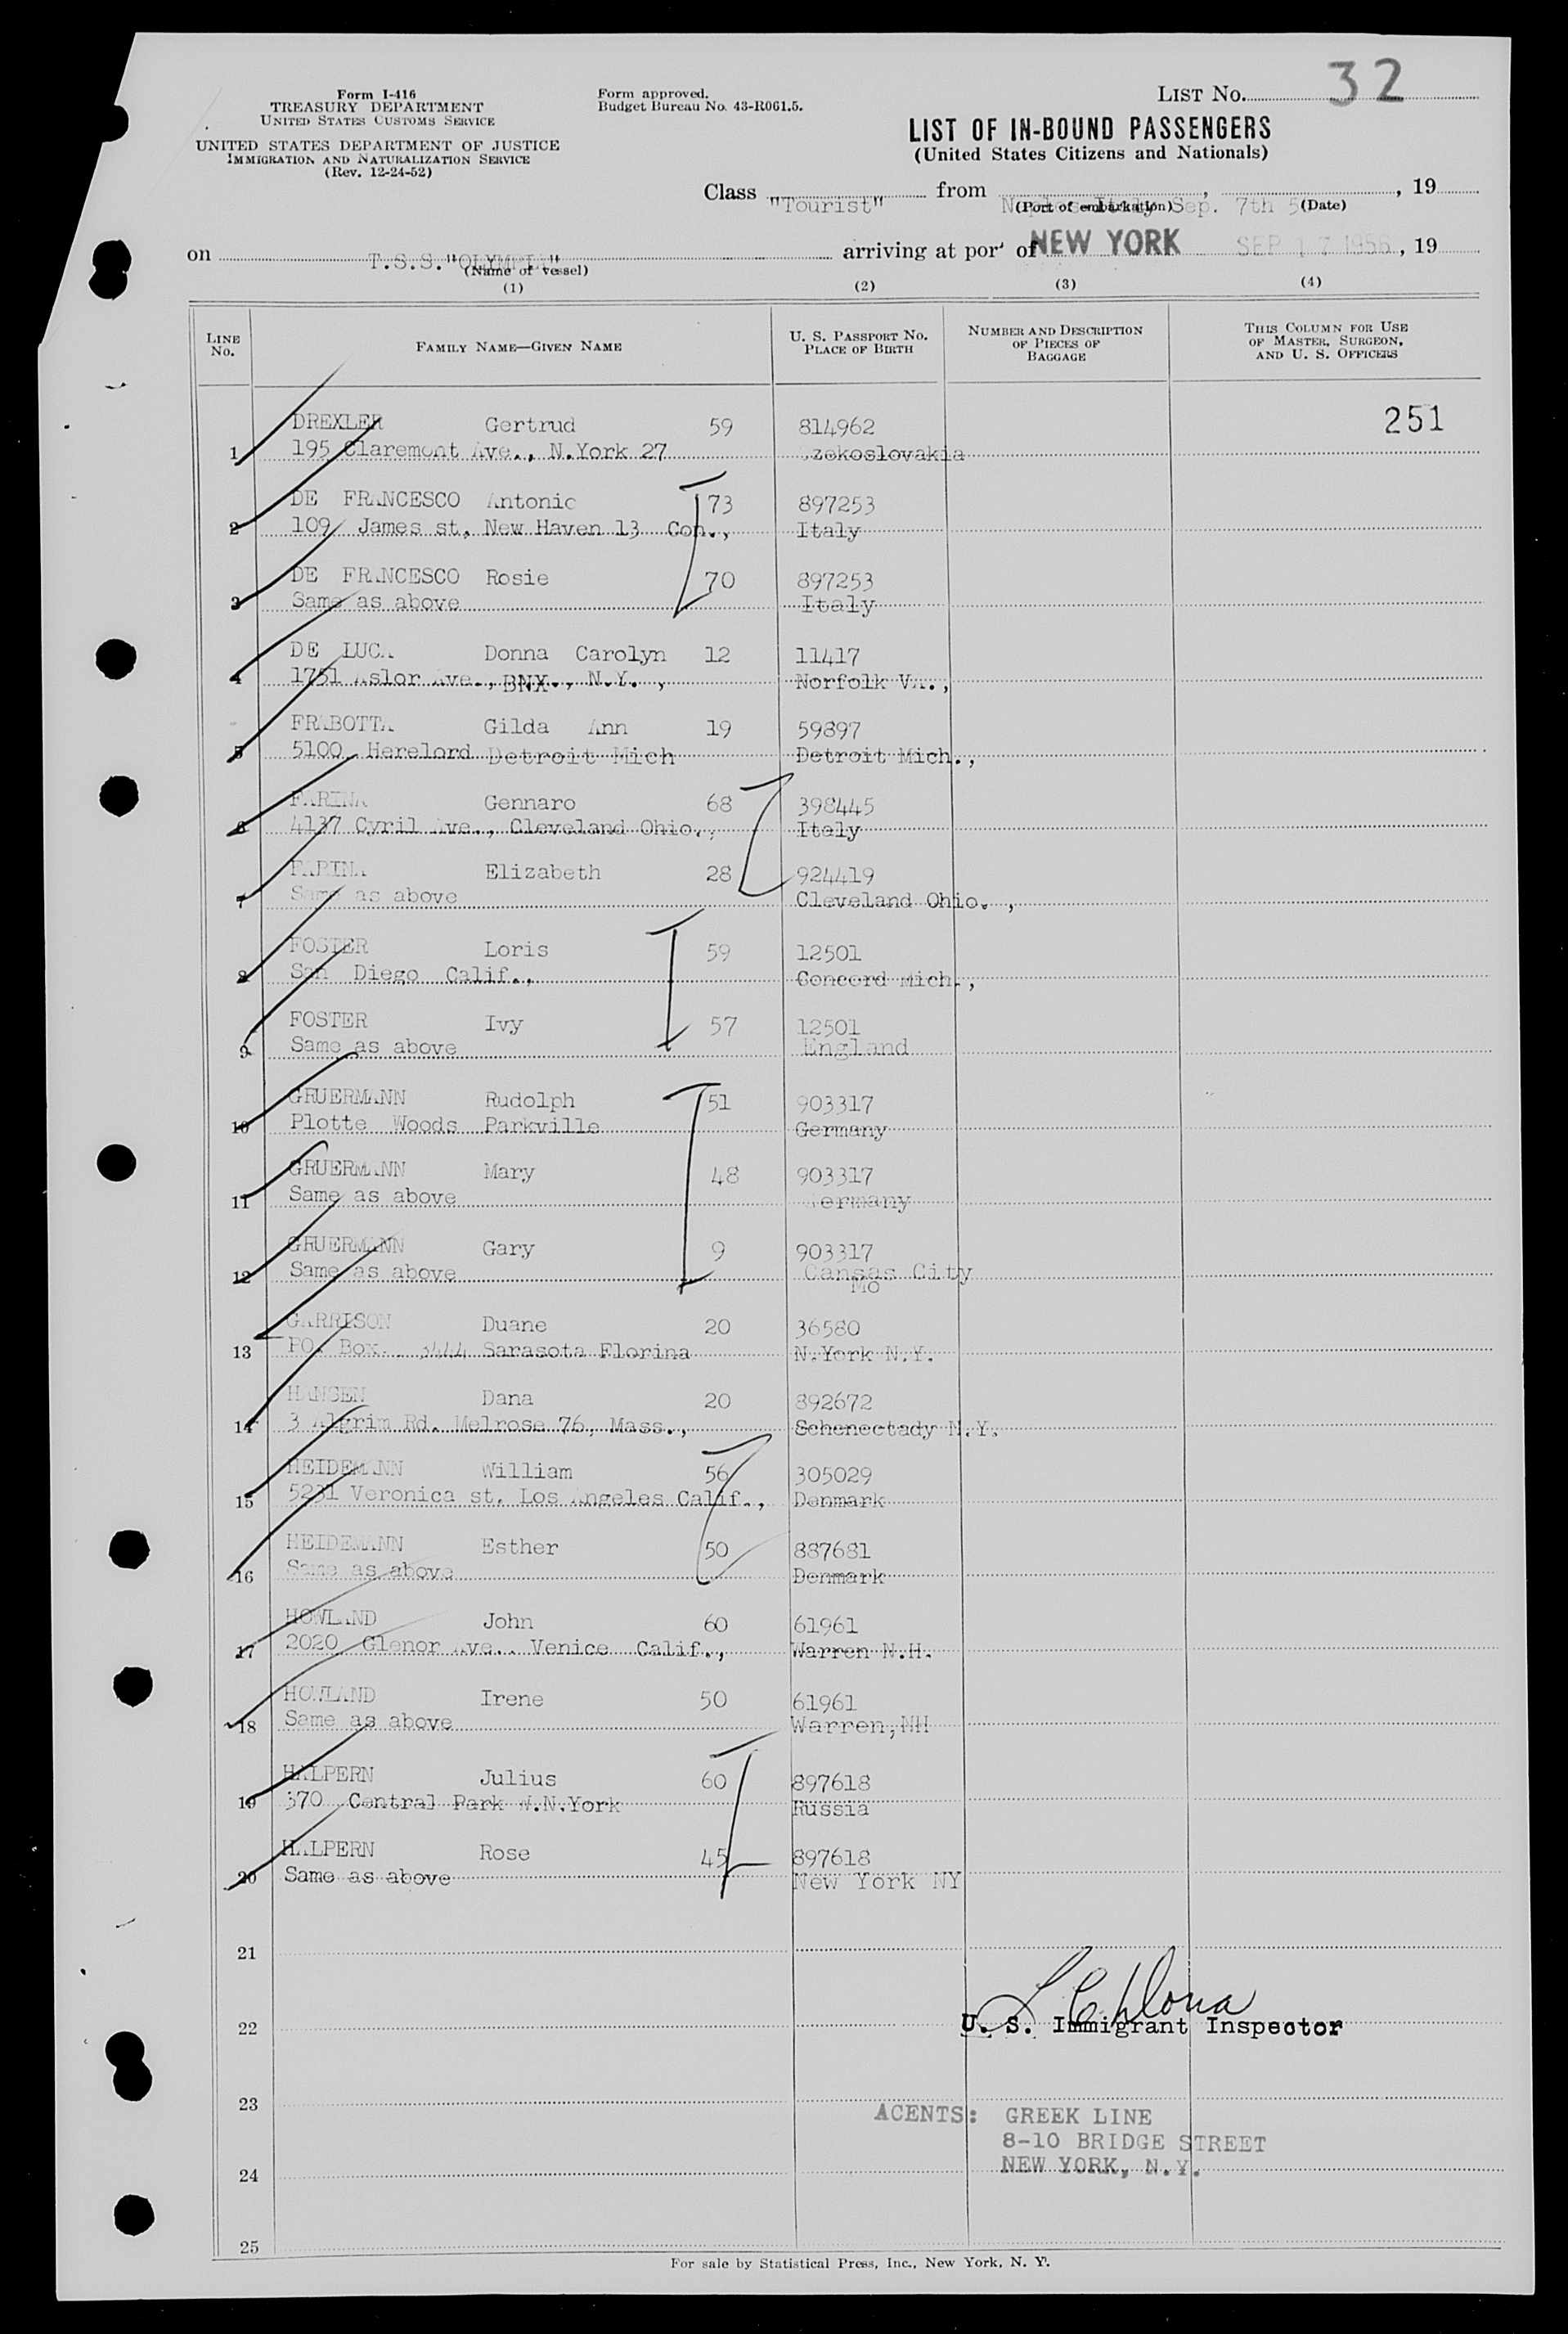 Form I-416
TREASURY DEPARTMENT
UNITED STATES CUSTOMS SERVICE
UNITED STATES DEPARTMENT OF JUSTICE
IMMIGRATION AND NATURALIZATION SERVICE
(Rev. 12-24-52)
Form approved.
Budget Bureau No. 43-R061.5.
LIST No. 32
LIST OF IN-BOUND PASSENGERS
(United States Citizens and Nationals)
Class "Tourist" from Naples-Italy Sep. 7th 5 , 19
(Port of embarkation) (Date)
on T.S.S."OLYMPIA" arriving at port of NEW YORK SEP 17 1956, 19
(Name of vessel)
(1) (2) (3) (4)
LINE No. FAMILY NAME—GIVEN NAME U. S. PASSPORT No. PLACE OF BIRTH NUMBER AND DESCRIPTION OF PIECES OF BAGGAGE THIS COLUMN FOR USE OF MASTER, SURGEON, AND U. S. OFFICERS
DREXLER Gertrud 59 814962 251
1 195 Claremont Ave., N.York 27 zekoslovakia
DE FRANCESCO Antonio 73 897253
2 109 James st, New Haven 13 Con., Italy
DE FRANCESCO Rosie 70 897253
3 Same as above Italy
DE LUCA Donna Carolyn 12 11417
4 1751 Aslor Ave., BNX., N.Y. , Norfolk VA.,
FRABOTTA Gilda Ann 19 59897
5 5100 Herelord Detroit Mich Detroit Mich.,
FARINA Gennaro 68 398445
6 4137 Cyril Ave., Cleveland Ohio., Italy
FARINA Elizabeth 28 924419
7 Same as above Cleveland Ohio. ,
FOSTER Loris 59 12501
8 San Diego Calif., Concord Mich.,
FOSTER Ivy 57 12501
9 Same as above England
GRUERMANN Rudolph 51 903317
10 Plotte Woods Parkville Germany
GRUERMANN Mary 48 903317
11 Same as above ermany
GRUERMANN Gary 9 903317
12 Same as above Cansas City
Mo
GARRISON Duane 20 36580
13 PO. Box. 3444 Sarasota Florina N.York N.Y.
HANSEN Dana 20 892672
14 3 Algrim Rd. Melrose 76, Mass., Schenectady N.Y.
HEIDEMANN William 56 305029
15 5231 Veronica st. Los Angeles Calif., Denmark
HEIDEMANN Esther 50 887681
16 Same as above Denmark
HOWLAND John 60 61961
17 2020 Glenor Ave.. Venice Calif., Warren N.H.
HOWLAND Irene 50 61961
18 Same as above Warren,NH
HALPERN Julius 60 897618
19 370 Central Park W.N.York Russia
HALPERN Rose 45 897618
20 Same as above New York NY
21
22 U. S. Immigrant Inspector
23
ACENTS: GREEK LINE
8-10 BRIDGE STREET
24 NEW YORK, N.Y.
25
For sale by Statistical Press, Inc., New York, N. Y.